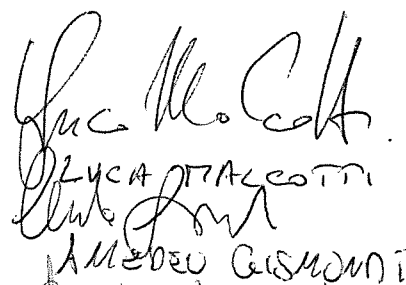 Luca Malcotti
LUCA MALCOTTI
AMEDEO GISMONDI